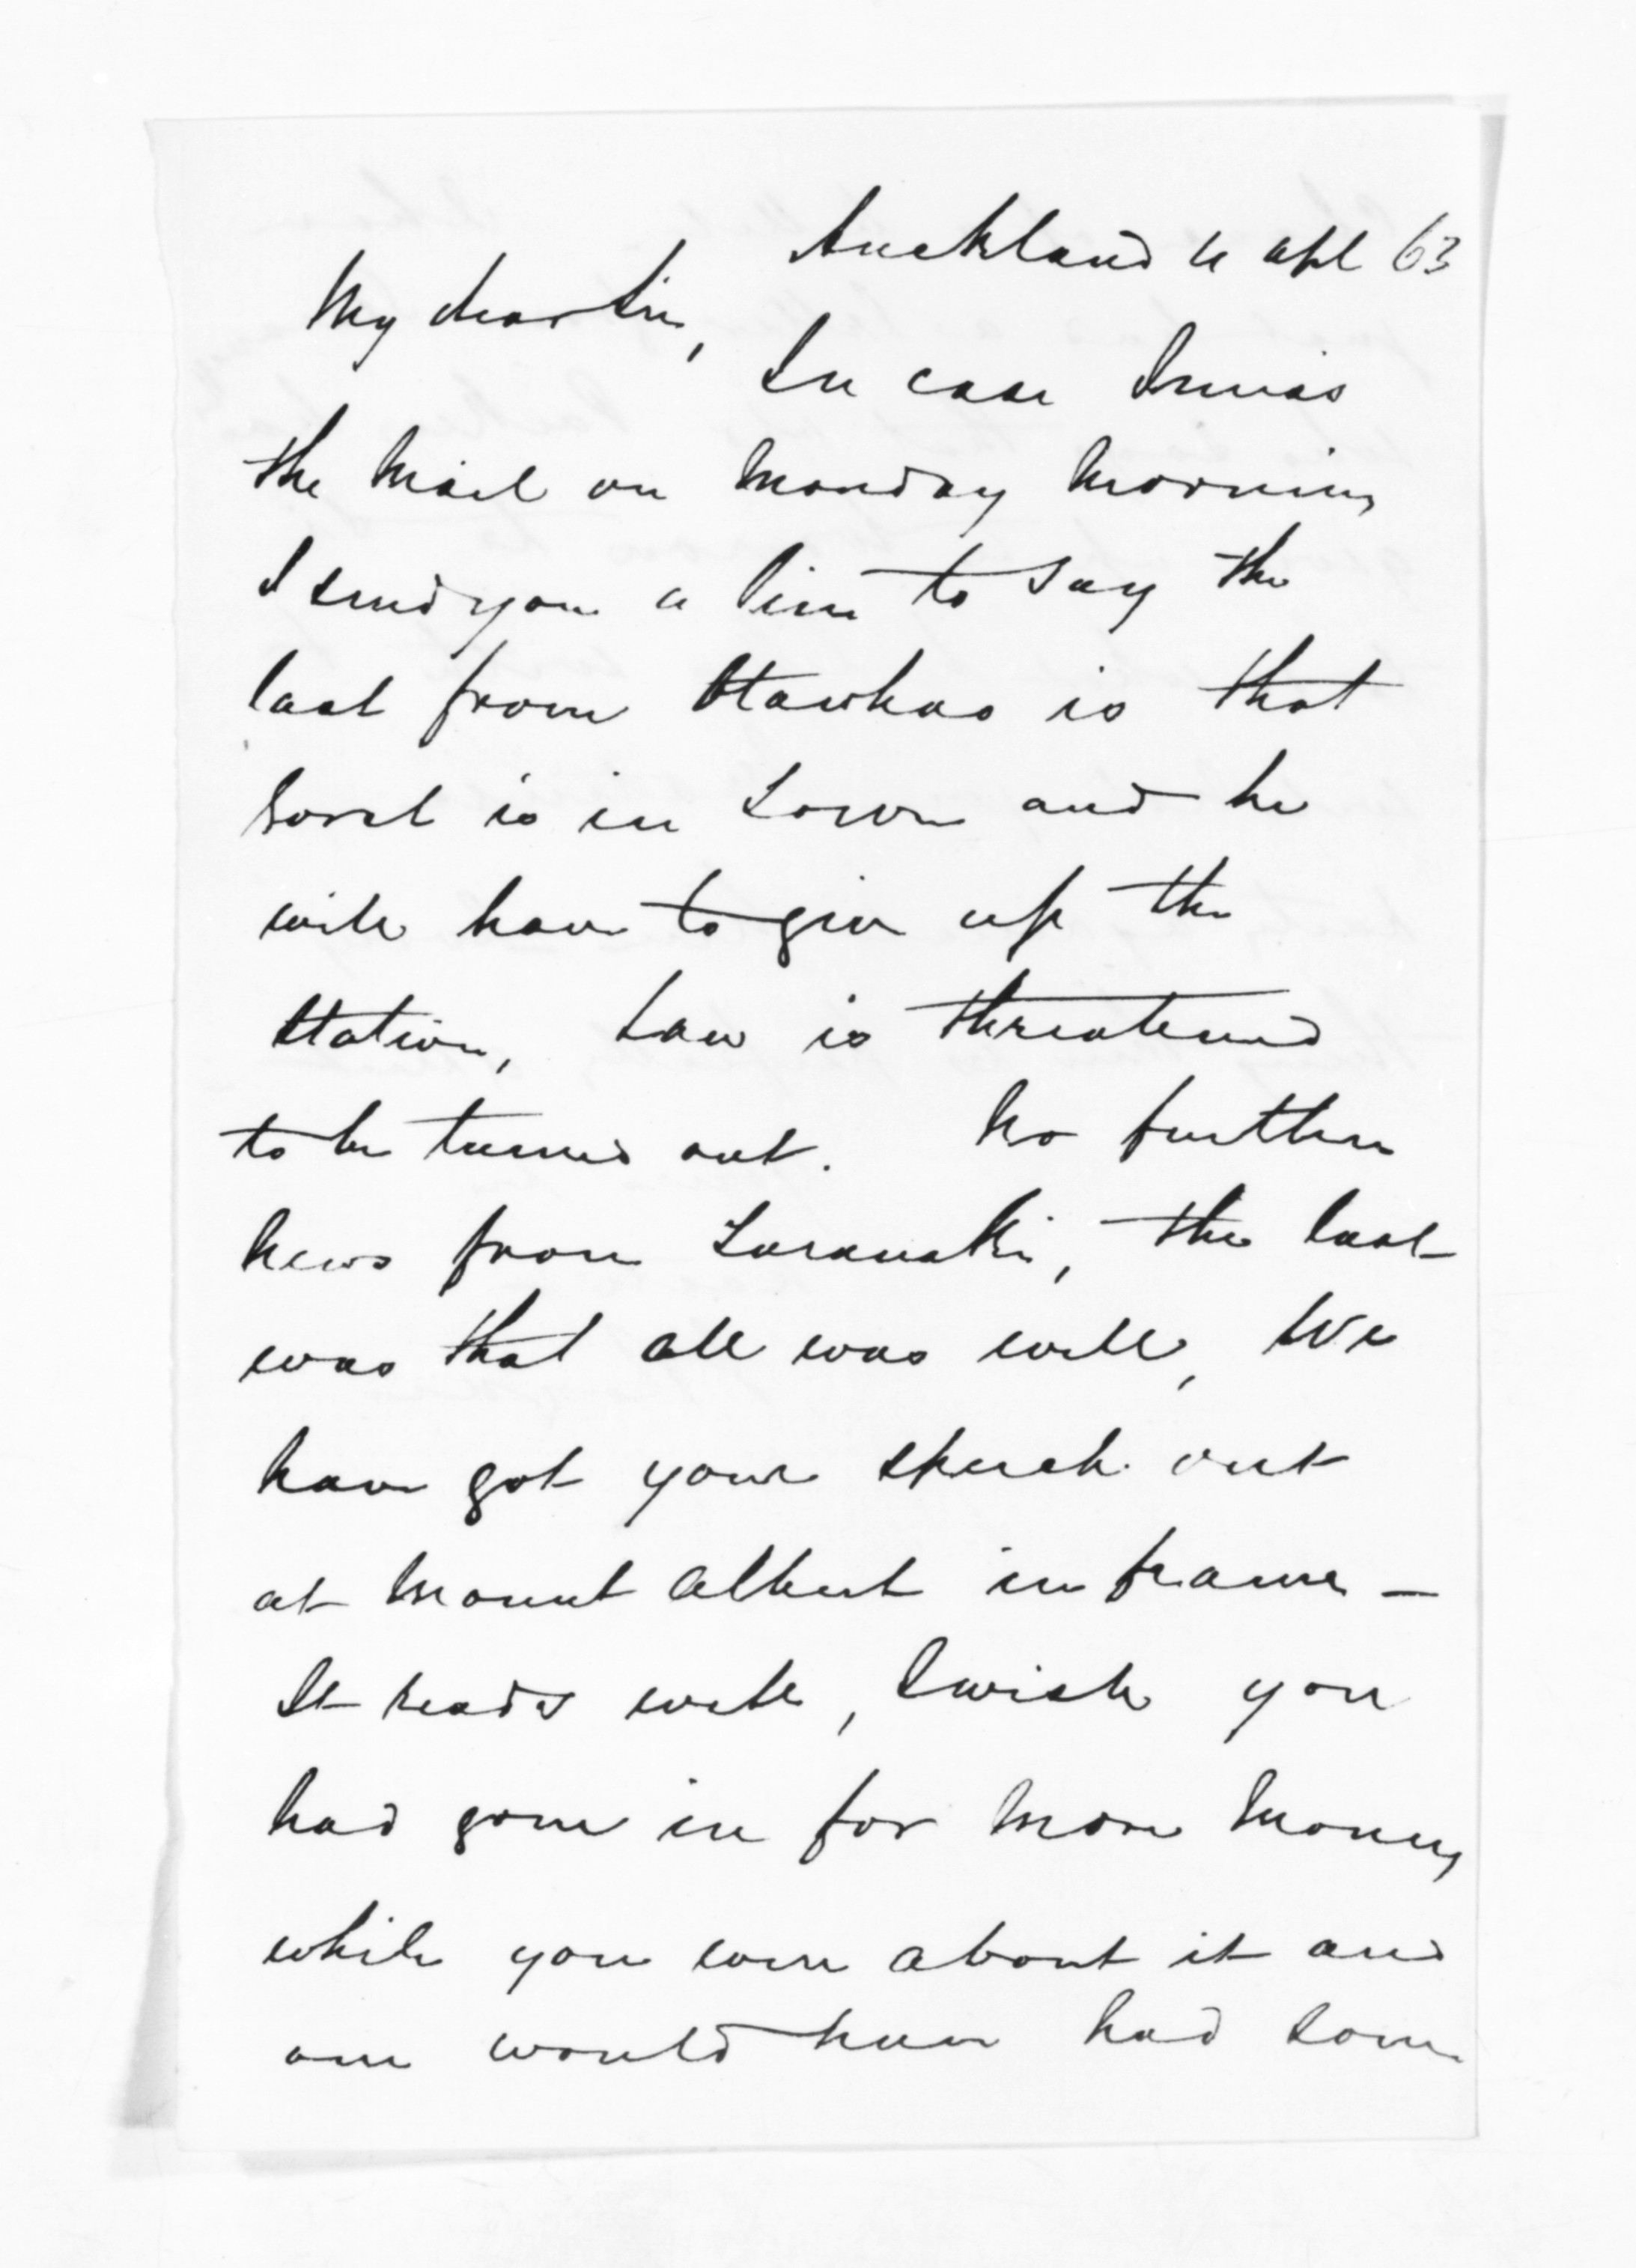 Auckland 11 apl 63
My dear Sir,
In case I miss
the Mail on Monday Morning
I send you a line to say the
last from Otawhao is that
Gorst is in Town and he
will have to give up the
Station, Law is threatened
to be turned out. No further
News from Taranaki, the last
was that all was well, We
have got your speech out
at Mount Albert in frame –
It reads well, I wish you
had gone in for More Money
while you were about it and
one would have had some